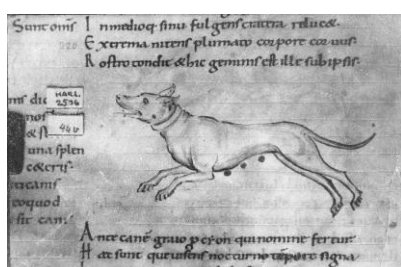 Sunt om̅s I n medioq; sinu fulgens cratera reluc&.
E xtrema nitens plumato corpore coruus.
R ostro condit &hic geminis est ille subipsis.
HARL.
46b
una splen
c&eris·
eoquod
A nte cane̅ graio p cyon qui nomine fertur
H ae sunt que uisens nocturno te̅pore signa